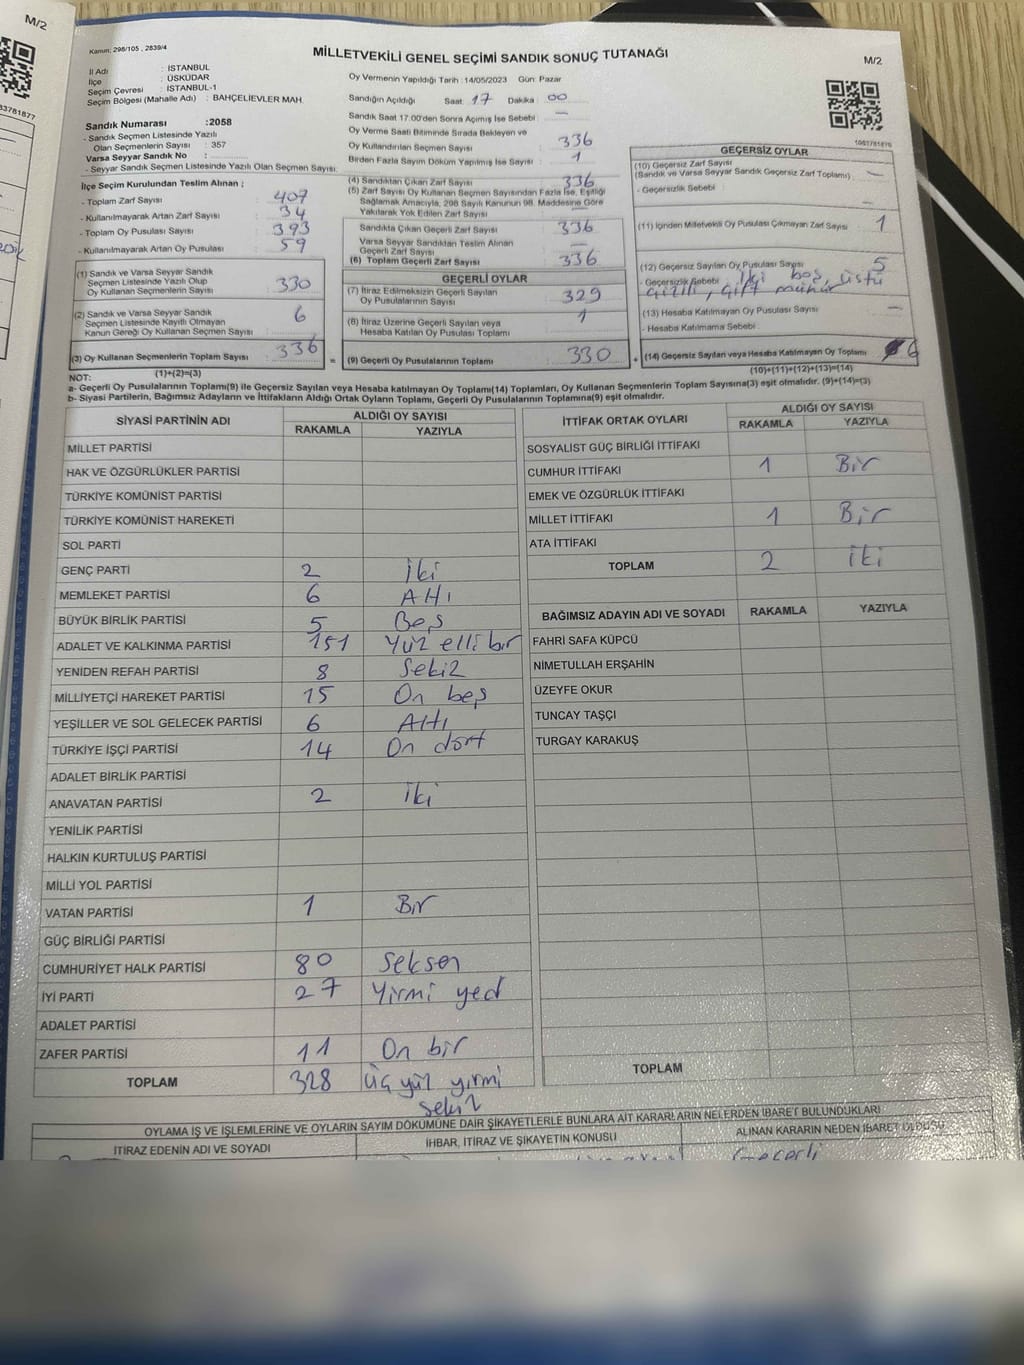 M/2
Kanun: 298/105 , 2839/4
MİLLETVEKİLİ GENEL SEÇİMİ SANDIK SONUÇ TUTANAĞI
M/2
İl Adı : İSTANBUL
İlçe : ÜSKÜDAR
Seçim Çevresi : İSTANBUL-1
Seçim Bölgesi (Mahalle Adı) : BAHÇELİEVLER MAH.
Sandık Numarası :2058
- Sandık Seçmen Listesinde Yazılı
Olan Seçmenlerin Sayısı : 357
Varsa Seyyar Sandık No :
- Seyyar Sandık Seçmen Listesinde Yazılı Olan Seçmen Sayısı:
Oy Vermenin Yapıldığı Tarih : 14/05/2023 Gün: Pazar
Sandığın Açıldığı Saat: 17 Dakika : 00
Sandık Saat 17.00'den Sonra Açımış İse Sebebi : —
Oy Verme Saati Bitiminde Sırada Bekleyen ve
Oy Kullandırılan Seçmen Sayısı : 336
Birden Fazla Sayım Döküm Yapılmış İse Sayısı : 1
1061781876
İlçe Seçim Kurulundan Teslim Alınan ;
- Toplam Zarf Sayısı : 407
- Kullanılmayarak Artan Zarf Sayısı : 34
- Toplam Oy Pusulası Sayısı : 393
- Kullanılmayarak Artan Oy Pusulası : 59
(1) Sandık ve Varsa Seyyar Sandık
Seçmen Listesinde Yazılı Olup
Oy Kullanan Seçmenlerin Sayısı : 330
(2) Sandık ve Varsa Seyyar Sandık
Seçmen Listesinde Kayıtlı Olmayan
Kanun Gereği Oy Kullanan Seçmen Sayısı : 6
(3) Oy Kullanan Seçmenlerin Toplam Sayısı : 336
(1)+(2)=(3)
(4) Sandıktan Çıkan Zarf Sayısı : 336
(5) Zarf Sayısı Oy Kullanan Seçmen Sayısından Fazla İse, Eşitliği
Sağlamak Amacıyla, 298 Sayılı Kanunun 98. Maddesine Göre
Yakılarak Yok Edilen Zarf Sayısı : —
Sandıkta Çıkan Geçerli Zarf Sayısı : 336
Varsa Seyyar Sandıktan Teslim Alınan
Geçerli Zarf Sayısı : —
(6) Toplam Geçerli Zarf Sayısı : 336
GEÇERLİ OYLAR
(7) İtiraz Edilmeksizin Geçerli Sayılan
Oy Pusulalarının Sayısı : 329
(8) İtiraz Üzerine Geçerli Sayılan veya
Hesaba Katılan Oy Pusulası Toplamı : 1
= (9) Geçerli Oy Pusulalarının Toplamı : 330 +
GEÇERSİZ OYLAR
(10) Geçersiz Zarf Sayısı
(Sandık ve Varsa Seyyar Sandık Geçersiz Zarf Toplamı) : —
- Geçersizlik Sebebi : —
(11) İçinden Milletvekili Oy Pusulası Çıkmayan Zarf Sayısı : 1
(12) Geçersiz Sayılan Oy Pusulası Sayısı : 5
- Geçersizlik Sebebi : İki boş, üstü
çizili, çift mühür
(13) Hesaba Katılmayan Oy Pusulası Sayısı : —
- Hesaba Katılmama Sebebi :
(14) Geçersiz Sayılan veya Hesaba Katılmayan Oy Toplamı : 6
(10)+(11)+(12)+(13)=(14)
NOT:
a- Geçerli Oy Pusulalarının Toplamı(9) ile Geçersiz Sayılan veya Hesaba katılmayan Oy Toplamı(14) Toplamları, Oy Kullanan Seçmenlerin Toplam Sayısına(3) eşit olmalıdır. (9)+(14)=(3)
b- Siyasi Partilerin, Bağımsız Adayların ve İttifakların Aldığı Ortak Oyların Toplamı, Geçerli Oy Pusulalarının Toplamına(9) eşit olmalıdır.
SİYASİ PARTİNİN ADI ALDIĞI OY SAYISI
RAKAMLA YAZIYLA
MİLLET PARTİSİ
HAK VE ÖZGÜRLÜKLER PARTİSİ
TÜRKİYE KOMÜNİST PARTİSİ
TÜRKİYE KOMÜNİST HAREKETİ
SOL PARTİ
GENÇ PARTİ 2 İki
MEMLEKET PARTİSİ 6 Altı
BÜYÜK BİRLİK PARTİSİ 5 Beş
ADALET VE KALKINMA PARTİSİ 151 Yüz elli bir
YENİDEN REFAH PARTİSİ 8 Sekiz
MİLLİYETÇİ HAREKET PARTİSİ 15 On beş
YEŞİLLER VE SOL GELECEK PARTİSİ 6 Altı
TÜRKİYE İŞÇİ PARTİSİ 14 On dört
ADALET BİRLİK PARTİSİ
ANAVATAN PARTİSİ 2 İki
YENİLİK PARTİSİ
HALKIN KURTULUŞ PARTİSİ
MİLLİ YOL PARTİSİ
VATAN PARTİSİ 1 Bir
GÜÇ BİRLİĞİ PARTİSİ
CUMHURİYET HALK PARTİSİ 80 Seksen
İYİ PARTİ 27 Yirmi yedi
ADALET PARTİSİ
ZAFER PARTİSİ 11 On bir
TOPLAM 328 Üç yüz yirmi
sekiz
İTTİFAK ORTAK OYLARI ALDIĞI OY SAYISI
RAKAMLA YAZIYLA
SOSYALİST GÜÇ BİRLİĞİ İTTİFAKI
CUMHUR İTTİFAKI 1 Bir
EMEK VE ÖZGÜRLÜK İTTİFAKI
MİLLET İTTİFAKI 1 Bir
ATA İTTİFAKI
TOPLAM 2 iki
BAĞIMSIZ ADAYIN ADI VE SOYADI RAKAMLA YAZIYLA
FAHRİ SAFA KÜPCÜ
NİMETULLAH ERŞAHİN
ÜZEYFE OKUR
TUNCAY TAŞÇI
TURGAY KARAKUŞ
TOPLAM
OYLAMA İŞ VE İŞLEMLERİNE VE OYLARIN SAYIM DÖKÜMÜNE DAİR ŞİKAYETLERLE BUNLARA AİT KARARLARIN NELERDEN İBARET BULUNDUKLARI
İTİRAZ EDENİN ADI VE SOYADI İHBAR, İTİRAZ VE ŞİKAYETİN KONUSU ALINAN KARARIN NEDEN İBARET OLDUĞU
Geçerli